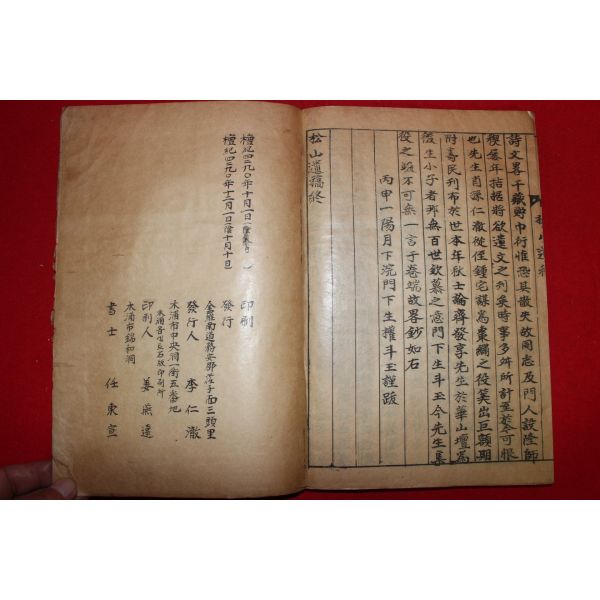 詩文畧干藏野巾衍惟恐其散失故同志及門人設隆師
稧屢年拮据將欲遺文之刊矣時事多舛所計至蹇可恨
也先生肖孫仁澈從侄鍾宅謀爲棗繡之役笑出巨額與
附壽民刊布於世本年秋士論齊發享先生於華山壇爲
後生小子者那無百世欽慕之意門下生斗玉今先生集
役之竣不可無一言于卷端故畧鈔如右
丙申一陽月下浣門下生權斗玉謹跋
松山遺稿終
檀紀四二九〇年十月一日
檀紀四二九〇年十二月一日(陰十月十日)
印刷
發行
全羅南道務安郡荏子面三頭里
發行人 李仁澈
木浦市中央洞一街五番地
印刷人 姜
木浦市錦和洞
書士 任東宣